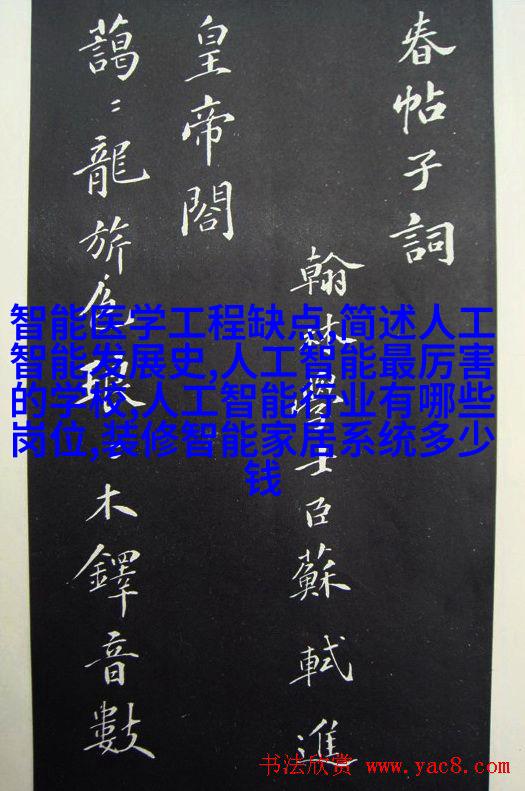 春帖子詞
翰林學士臣蘇軾進
皇帝閤
藹〻龍旂色琅〻木鐸音數
智能医学工程缺点,简述人工
智能发展史,人工智能最厉害
的学校,人工智能行业有哪些
岗位,装修智能家居系统多少
钱
书法欣赏 www.yac8.com